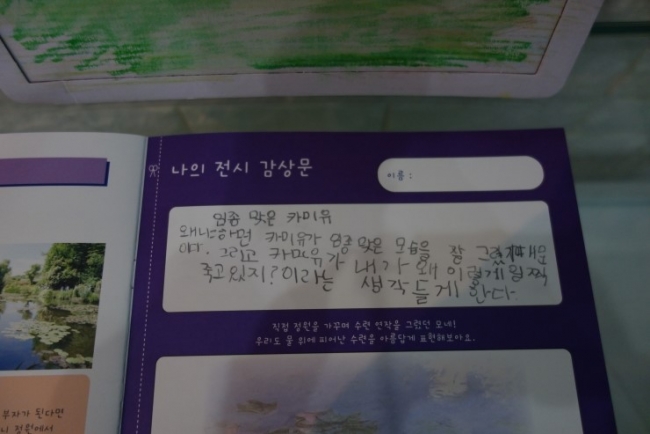 나의 전시 감상문
이름 :
임종 맞은 카미유
왜냐하면 카미유가 임종 맞은 모습을 잘 그렸기 때문
이다. 그리고 카미유가 내가 왜 이렇게 일찍
죽고있지?이라는 생각들게 한다.
직접 정원을 가꾸며 수련 연작을 그렸던 모네!
우리도 물 위에 피어난 수련을 아름답게 표현해보아요.
부자가 된다면
니 정원에서